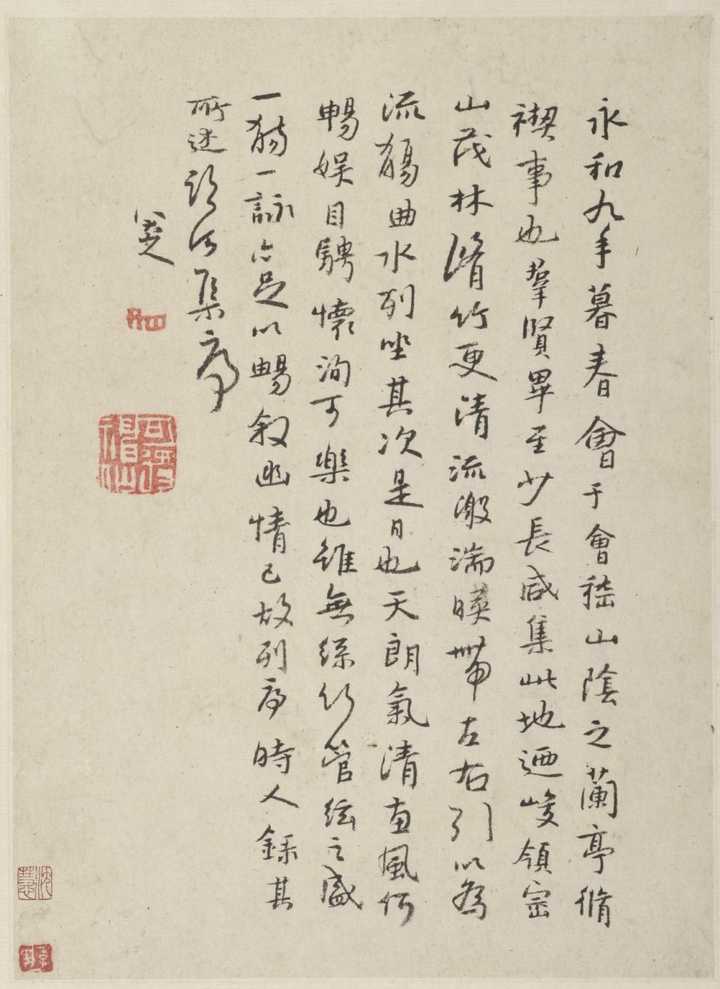 永和九年暮春會于會嵇山陰之蘭亭脩
禊事也羣賢畢至少長咸集此地迺峻領崇
山茂林脩竹更清流激湍暎帶左右引以為
流觴曲水列坐其次是日也天朗氣清惠風和
暢娛目騁懷洵可樂也雖無絲竹管絃之盛
一觴一詠亦足以暢敘幽情已故列序時人錄其
所述臨河集序
八大山人
可得神仙